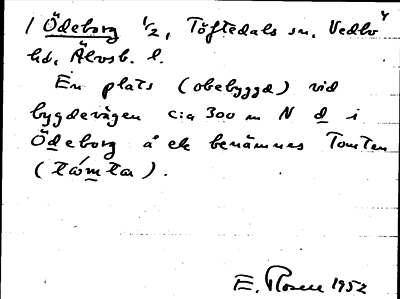 / Ödeborg 1/2, Töftedals sn, Vedbo
hd, Älvsb. l.
En plats (obebyggd) vid
bygdevägen c:a 300 m N d i
Ödeborg å ek benämnes Tomten
(tåmta).
E. Rosen 1952